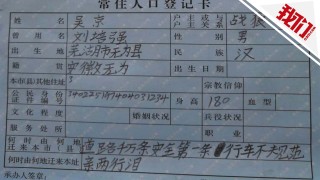 我们
常住人口登记卡
姓名 吴京 户主或与户主关系 战狼
曾用名 刘培强 性别 男
出生地 芜湖市无为县 民族 汉
籍贯 安徽无为 出生日期
本市(县)其他住址 宗教信仰
公民身份 身高 180 血型
婚姻状况 兵役状况
服务处所 职业
何时由何地迁来本市(县) 道路千万条安全第一条 行车不规范
何时何地迁来本址 亲两行泪
承办人签章: